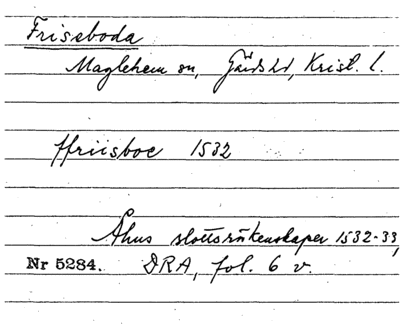 Friseboda
Maglehem sn, Gärds hd, Krist. l.
ffriisboe 1532
Åhus slottsräkenskaper 1532-33,
Nr 5284. DRA, fol. 6 v.